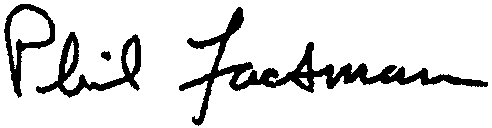 Phil Factsman